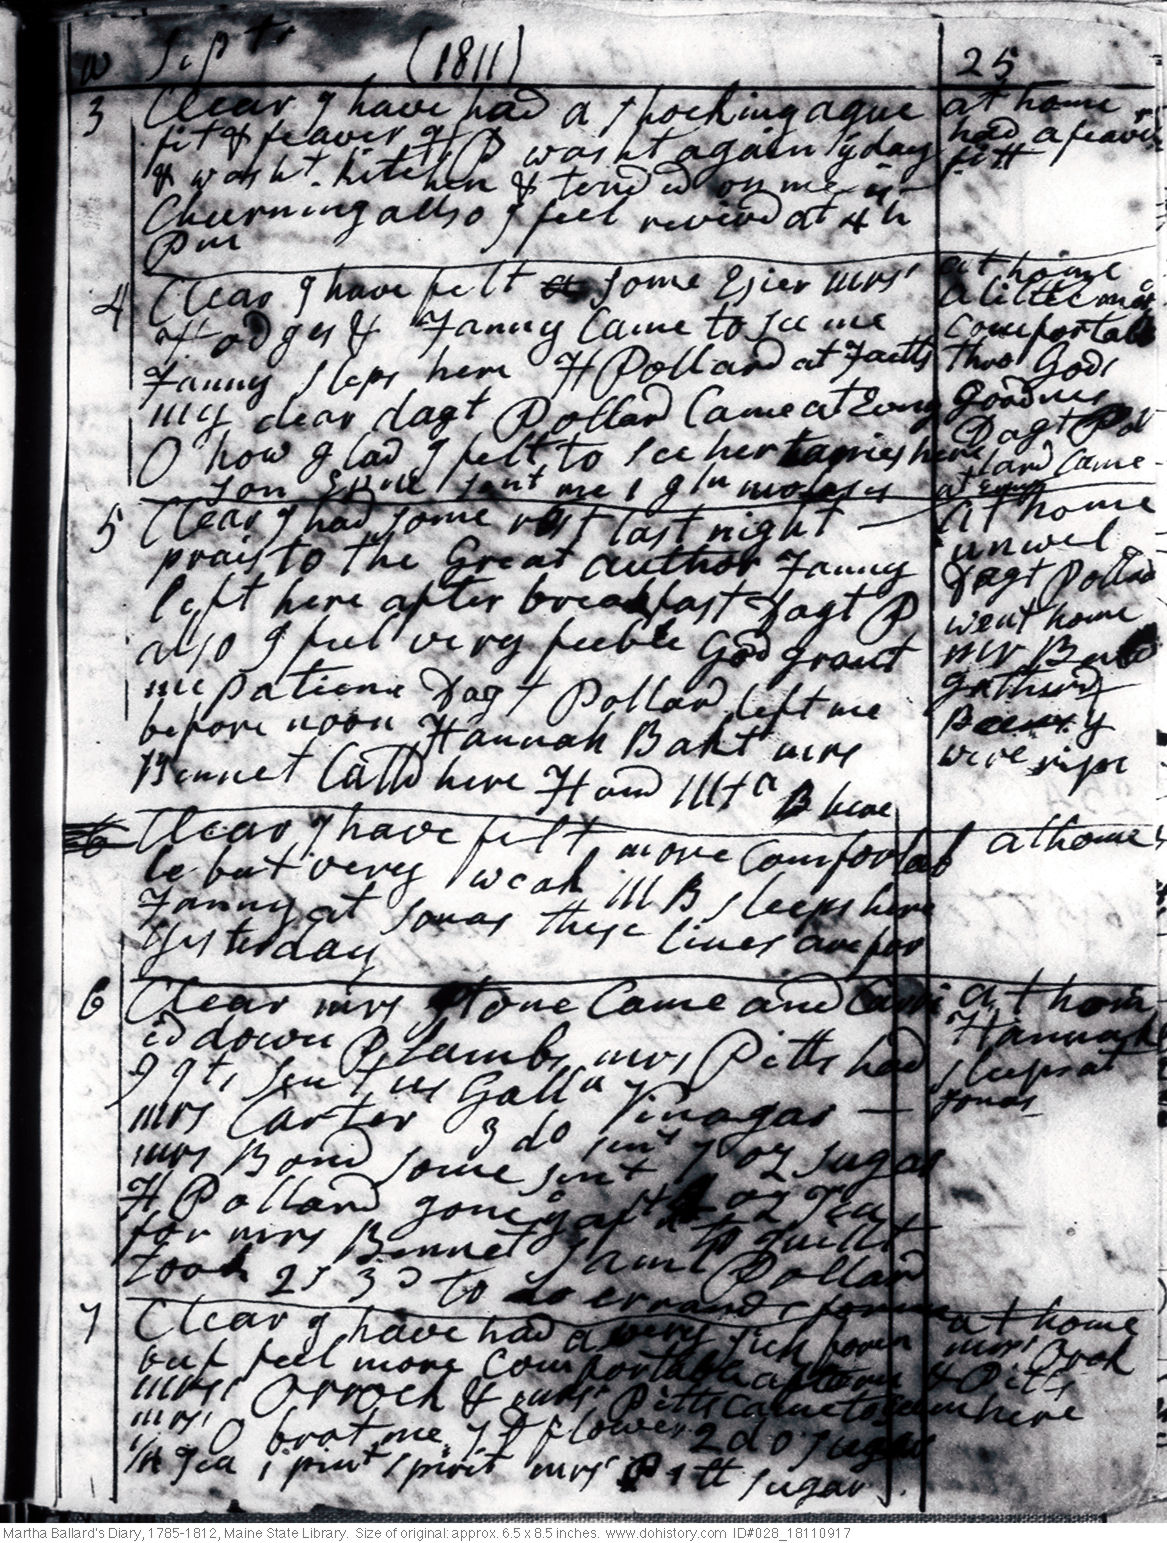 Sept (1811) 25
3 Clear I have had a shocking ague
fit & feaver H P washt again yday
& washt kitchen & tend d on me is
Chuerning allso I feel revivd at 4 h
Pm
at home
had a feaver
fitt
4 Clear I have felt some Esier mrs
Hodges & Fanny Came to see me
Fanny sleps here H Pollard at Faetts
my dear dagt Pollard Came at Evng
O how glad I felt to see her tarries here
son sent me 1 gln molases
at home
a little more
comfortabl
thro Gods
Goodness
Dagt Pol
lard Came
at Evng
5 Clear I had some rest last night
prais to the Great author Fanny
left here after breakfast Dagt P
also I feel very feeble God grant
me patience Dagt Pollard left me
before noon Hannah Bakt mrs
Bennet Calld here H and B here
at home
unwel
Dagt Pollard
went home
mr
gatherd
were ripe
6 Clear I have felt more Comfortab
le but very weak B sleeps here
Fanny at Jonas these lines are for
yesterday
at home
6 Clear mrs Stone Came and Carri
ed down Plambs mrs Pitts had
9 qts sent us Galln Vinagar
mrs Carter 3 do sent oz sugar
mrs Bond some sent oz Tea
H Pollard gone
for mrs Bennet Saml Pollard
took 2s 3d to do errands for me
at home
Hannah
sleeps at
Jonas
7 Clear I have had a very sick forn
but feel more comfortable aftern
mrs Orroch & mrs Pitts came to see me
mrs O brot me flower 2 do sugar
Tea 1 pint spirit mrs P 1 lb sugar
at home
mrs Oroh
& Pitts
here
Martha Ballard's Diary, 1785-1812, Maine State Library. Size of original: approx. 6.5 x 8.5 inches. www.dohistory.com ID#028_18110917